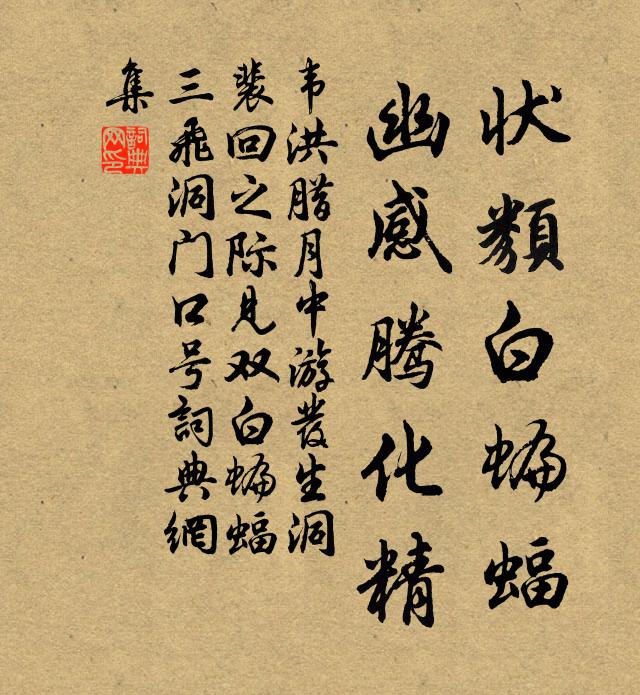 状類白蝙蝠
幽感騰化精
韦洪腊月中游發生洞
裴回之际見双白蝙蝠
三飛洞门口号詞典網
集
詞典網印